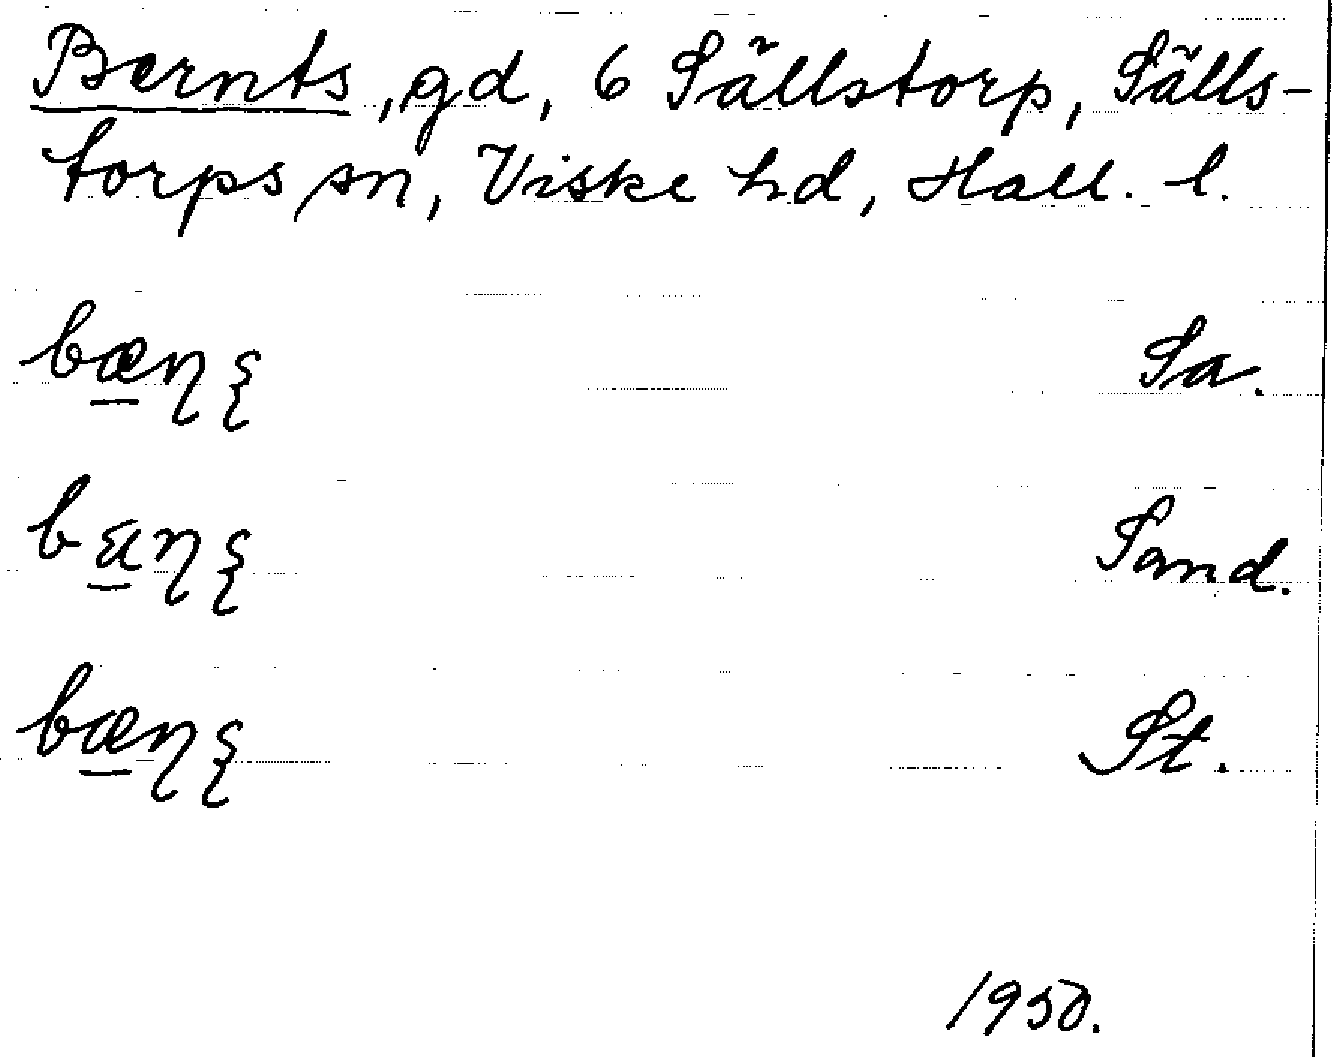 Bernts, gd, 6 Sällstorp, Sälls-
torps sn, Viske hd, Hall. l.
bæɳʂ Sa.
bɛɳʂ Sand.
bæɳʂ St.
1950.